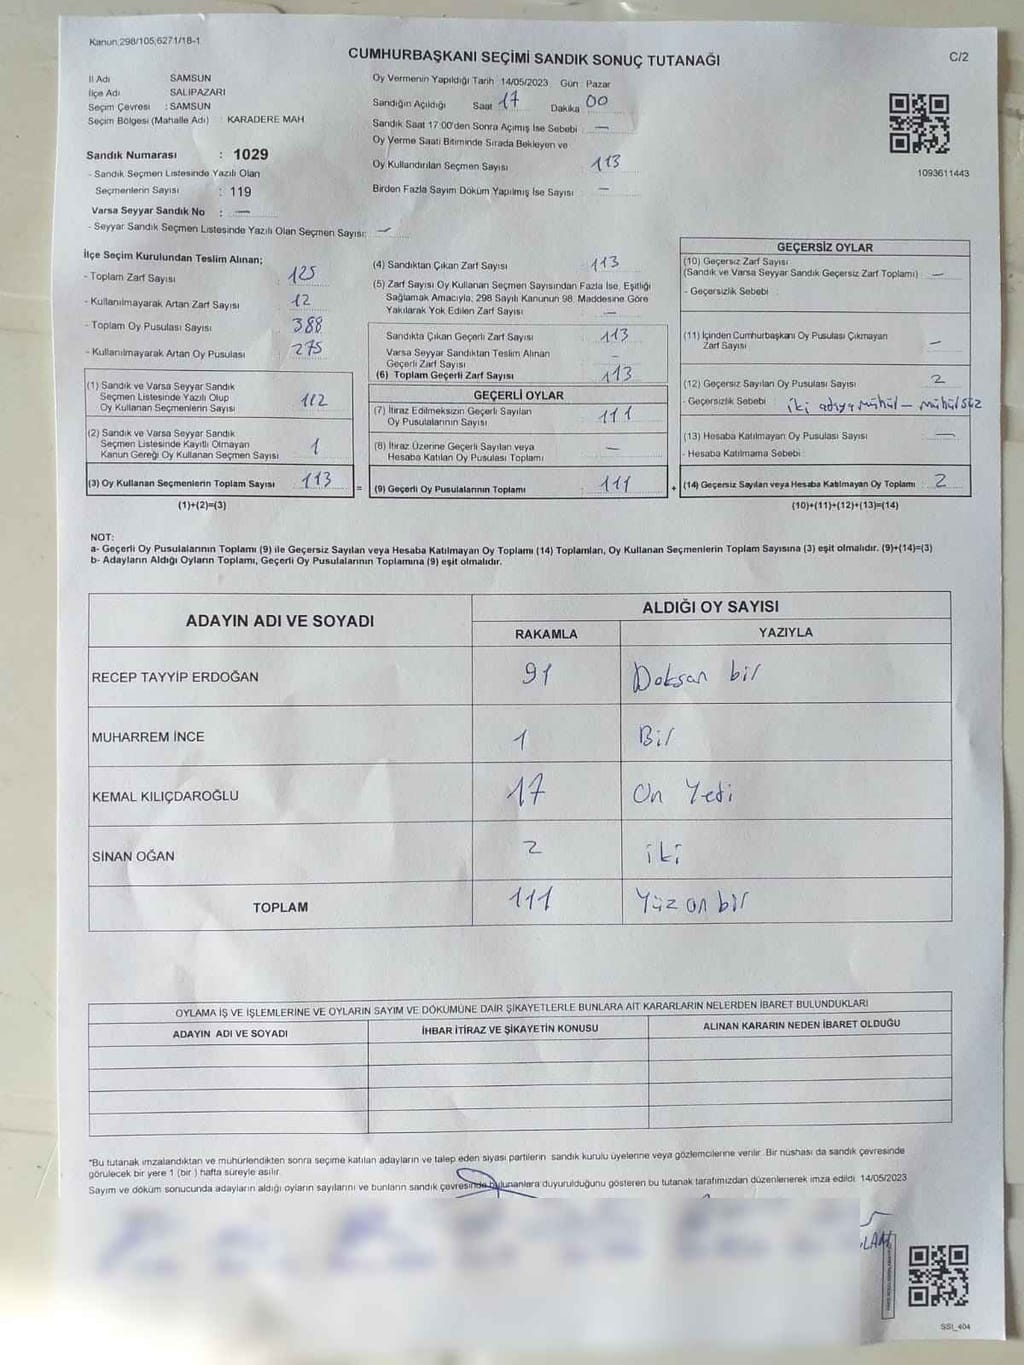 Kanun 298/105,6271/18-1
CUMHURBAŞKANI SEÇİMİ SANDIK SONUÇ TUTANAĞI
C/2
İl Adı SAMSUN
İlçe Adı SALIPAZARI
Seçim Çevresi : SAMSUN
Seçim Bölgesi (Mahalle Adı) : KARADERE MAH
Sandık Numarası : 1029
- Sandık Seçmen Listesinde Yazılı Olan
Seçmenlerin Sayısı : 119
Varsa Seyyar Sandık No : —
- Seyyar Sandık Seçmen Listesinde Yazılı Olan Seçmen Sayısı: —
Oy Vermenin Yapıldığı Tarih 14/05/2023 Gün : Pazar
Sandığın Açıldığı Saat 17 Dakika 00
Sandık Saat 17:00'den Sonra Açımış İse Sebebi : —
Oy Verme Saati Bitiminde Sırada Bekleyen ve
Oy Kullandırılan Seçmen Sayısı : 113
Birden Fazla Sayım Döküm Yapılmış İse Sayısı : —
1093611443
İlçe Seçim Kurulundan Teslim Alınan;
- Toplam Zarf Sayısı 125
- Kullanılmayarak Artan Zarf Sayısı 12
- Toplam Oy Pusulası Sayısı 388
- Kullanılmayarak Artan Oy Pusulası 275
(1) Sandık ve Varsa Seyyar Sandık
Seçmen Listesinde Yazılı Olup
Oy Kullanan Seçmenlerin Sayısı 112
(2) Sandık ve Varsa Seyyar Sandık
Seçmen Listesinde Kayıtlı Olmayan
Kanun Gereği Oy Kullanan Seçmen Sayısı 1
(3) Oy Kullanan Seçmenlerin Toplam Sayısı 113
(1)+(2)=(3)
=
(4) Sandıktan Çıkan Zarf Sayısı 113
(5) Zarf Sayısı Oy Kullanan Seçmen Sayısından Fazla İse, Eşitliği
Sağlamak Amacıyla, 298 Sayılı Kanunun 98. Maddesine Göre
Yakılarak Yok Edilen Zarf Sayısı —
Sandıkta Çıkan Geçerli Zarf Sayısı 113
Varsa Seyyar Sandıktan Teslim Alınan
Geçerli Zarf Sayısı —
(6) Toplam Geçerli Zarf Sayısı 113
GEÇERLİ OYLAR
(7) İtiraz Edilmeksizin Geçerli Sayılan
Oy Pusulalarının Sayısı 111
(8) İtiraz Üzerine Geçerli Sayılan veya
Hesaba Katılan Oy Pusulası Toplamı —
(9) Geçerli Oy Pusulalarının Toplamı 111
+
GEÇERSİZ OYLAR
(10) Geçersiz Zarf Sayısı
(Sandık ve Varsa Seyyar Sandık Geçersiz Zarf Toplamı) : —
- Geçersizlik Sebebi :
(11) İçinden Cumhurbaşkanı Oy Pusulası Çıkmayan
Zarf Sayısı —
(12) Geçersiz Sayılan Oy Pusulası Sayısı : 2
- Geçersizlik Sebebi : iki adaya mühül – mühülsüz
(13) Hesaba Katılmayan Oy Pusulası Sayısı : —
- Hesaba Katılmama Sebebi :
(14) Geçersiz Sayılan veya Hesaba Katılmayan Oy Toplamı : 2
(10)+(11)+(12)+(13)=(14)
NOT:
a- Geçerli Oy Pusulalarının Toplamı (9) ile Geçersiz Sayılan veya Hesaba Katılmayan Oy Toplamı (14) Toplamları, Oy Kullanan Seçmenlerin Toplam Sayısına (3) eşit olmalıdır. (9)+(14)=(3)
b- Adayların Aldığı Oyların Toplamı, Geçerli Oy Pusulalarının Toplamına (9) eşit olmalıdır.
ADAYIN ADI VE SOYADI
ALDIĞI OY SAYISI
RAKAMLA YAZIYLA
RECEP TAYYİP ERDOĞAN 91 Doksan bir
MUHARREM İNCE 1 Bir
KEMAL KILIÇDAROĞLU 17 On Yedi
SİNAN OĞAN 2 iki
TOPLAM 111 Yüz on bir
OYLAMA İŞ VE İŞLEMLERİNE VE OYLARIN SAYIM VE DÖKÜMÜNE DAİR ŞİKAYETLERLE BUNLARA AİT KARARLARIN NELERDEN İBARET BULUNDUKLARI
ADAYIN ADI VE SOYADI İHBAR İTİRAZ VE ŞİKAYETİN KONUSU ALINAN KARARIN NEDEN İBARET OLDUĞU
*Bu tutanak imzalandıktan ve mühürlendikten sonra seçime katılan adayların ve talep eden siyasi partilerin sandık kurulu üyelerine veya gözlemcilerine verilir. Bir nüshası da sandık çevresinde
görülecek bir yere 1 (bir ) hafta süreyle asılır.
Sayım ve döküm sonucunda adayların aldığı oyların sayılarını ve bunların sandık çevresinde bulunanlara duyurulduğunu gösteren bu tutanak tarafımızdan düzenlenerek imza edildi. 14/05/2023
SSI_404